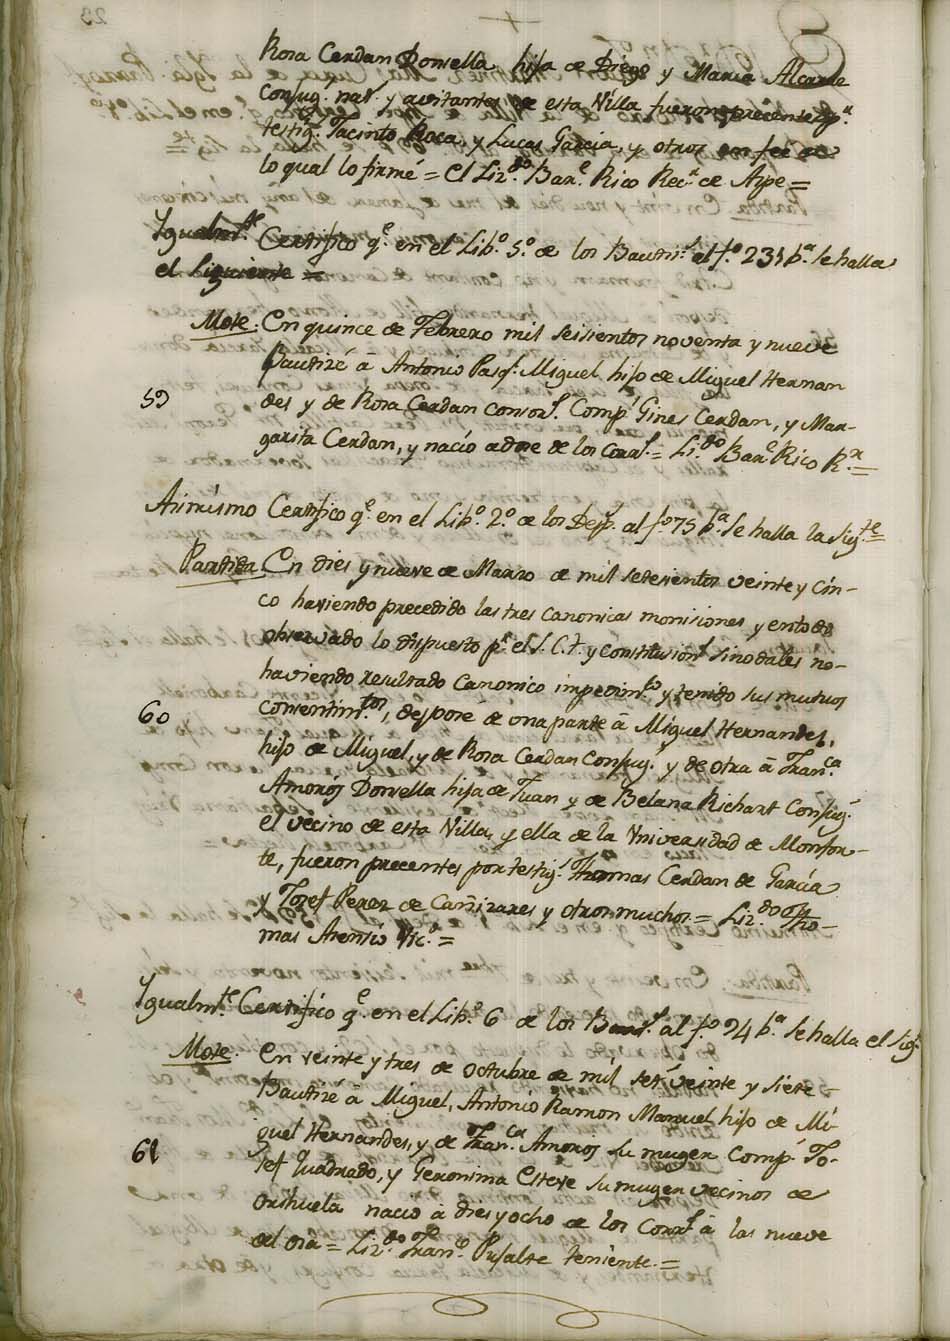 Rosa Cerdan Donsella hija de Diego y Maria Alcarae
Conjug.s nat.s y avitantes de esta Villa fueron precentes p.r
testig.s Jacinto Roca, y Lucas Garcia, y otros en fee de
lo qual lo firmé = El Liz.do Bar.e Rico Rec.r de Aspe =
Igualm.te Certifico q.e en el Lib.o 5.o de los Bautis.s al f.o 231 b.a se halla
el Siguiente =
Mote. En quince de Febrero mil seissientos noventa y nueve
Bautizé â Antonio Pasq.l Miguel hijo de Miguel Hernan
59 des y de Rosa Cerdan consor.s Comp.s Gines Cerdan, y Mar-
garita Cerdan, y nacio a dose de los Corr.s = Li.do Bar.e Rico R.r =
Asimismo Certifico q.e en el Lib.o 2.o de los Desp.s al f.o 75 b.a se halla la Sig.te =
Partida En dies y nueve de Marzo de mil setesientos veinte y sin-
co haviendo precedido las tres canonicas monisiones y en todo
observado lo dispuesto p.r el S. C. T. y constitusion.s sinodales no-
haviendo resultado canonico impedim.to y tenido sus mutuos
60 consentim.tos, despose de una parte â Miguel Hernandes,
hijo de Miguel, y de Rosa Cerdan Conjug.s y de otra â Fran.ca
Amorós Donsella hija de Juan y de Belana Richart Conjug.s
el vecino de esta Villa, y ella de la Universidad de Monfor-
te, fueron precentes por testig.s Thomas Cerdan de Garcia
y Josef Perez de Cañizares y otros muchos = Liz.do Tho-
mas Asensio Vic.o =
Igualm.te Certifico q.e en el Lib.o 6 de los Baut.s al f.o 24 b.a se halla el Sig.te
Mote. En veinte y tres de octubre de mil set.s veinte y siete
Bautizé â Miguel, Antonio Ramon Manuel hijo de Mi-
61 guel Hernandes, y de Fran.ca Amoros su muger Comp.s Jo-
sef Quadrado, y Geronima Esteve su muger vecinos de
Orihuela nacio â dies y ocho de los Corr.s â las nueve
del dia = Liz.do Fran.co Pujalte teniente. =